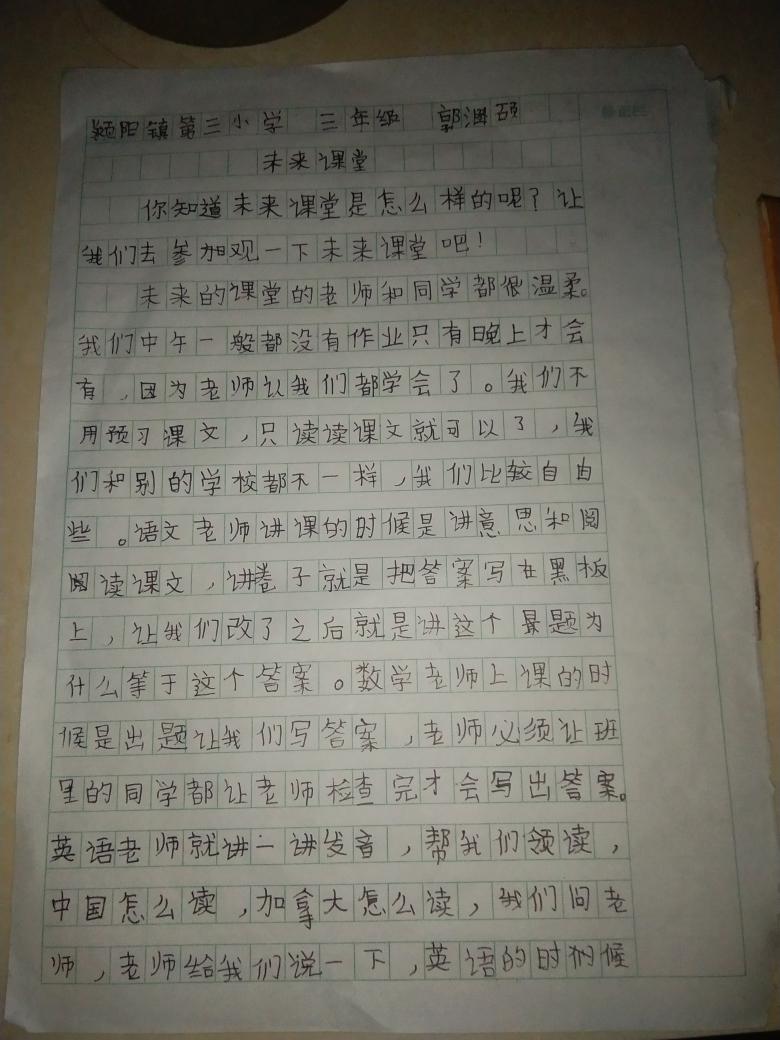 颍阳镇第三小学 三年级 郭渊硕
未来课堂
你知道未来课堂是怎么样的呢？让
我们去参加观一下未来课堂吧！
未来的课堂的老师和同学都很温柔。
我们中午一般都没有作业只有晚上才会
有，因为老师认我们都学会了。我们不
用预习课文，只读读课文就可以了，我
们和别的学校都不一样，我们比较自由
些。语文老师讲课的时候是讲意思和阅
阅读课文，讲卷子就是把答案写在黑板
上，让我们改了之后就是讲这个题为
什么等于这个答案。数学老师上课的时
候是出题让我们写答案，老师必须让班
里的同学都让老师检查完才会写出答案。
英语老师就讲一讲发音，帮我们领读，
中国怎么读，加拿大怎么读，我们问老
师，老师给我们说一下，英语的时候